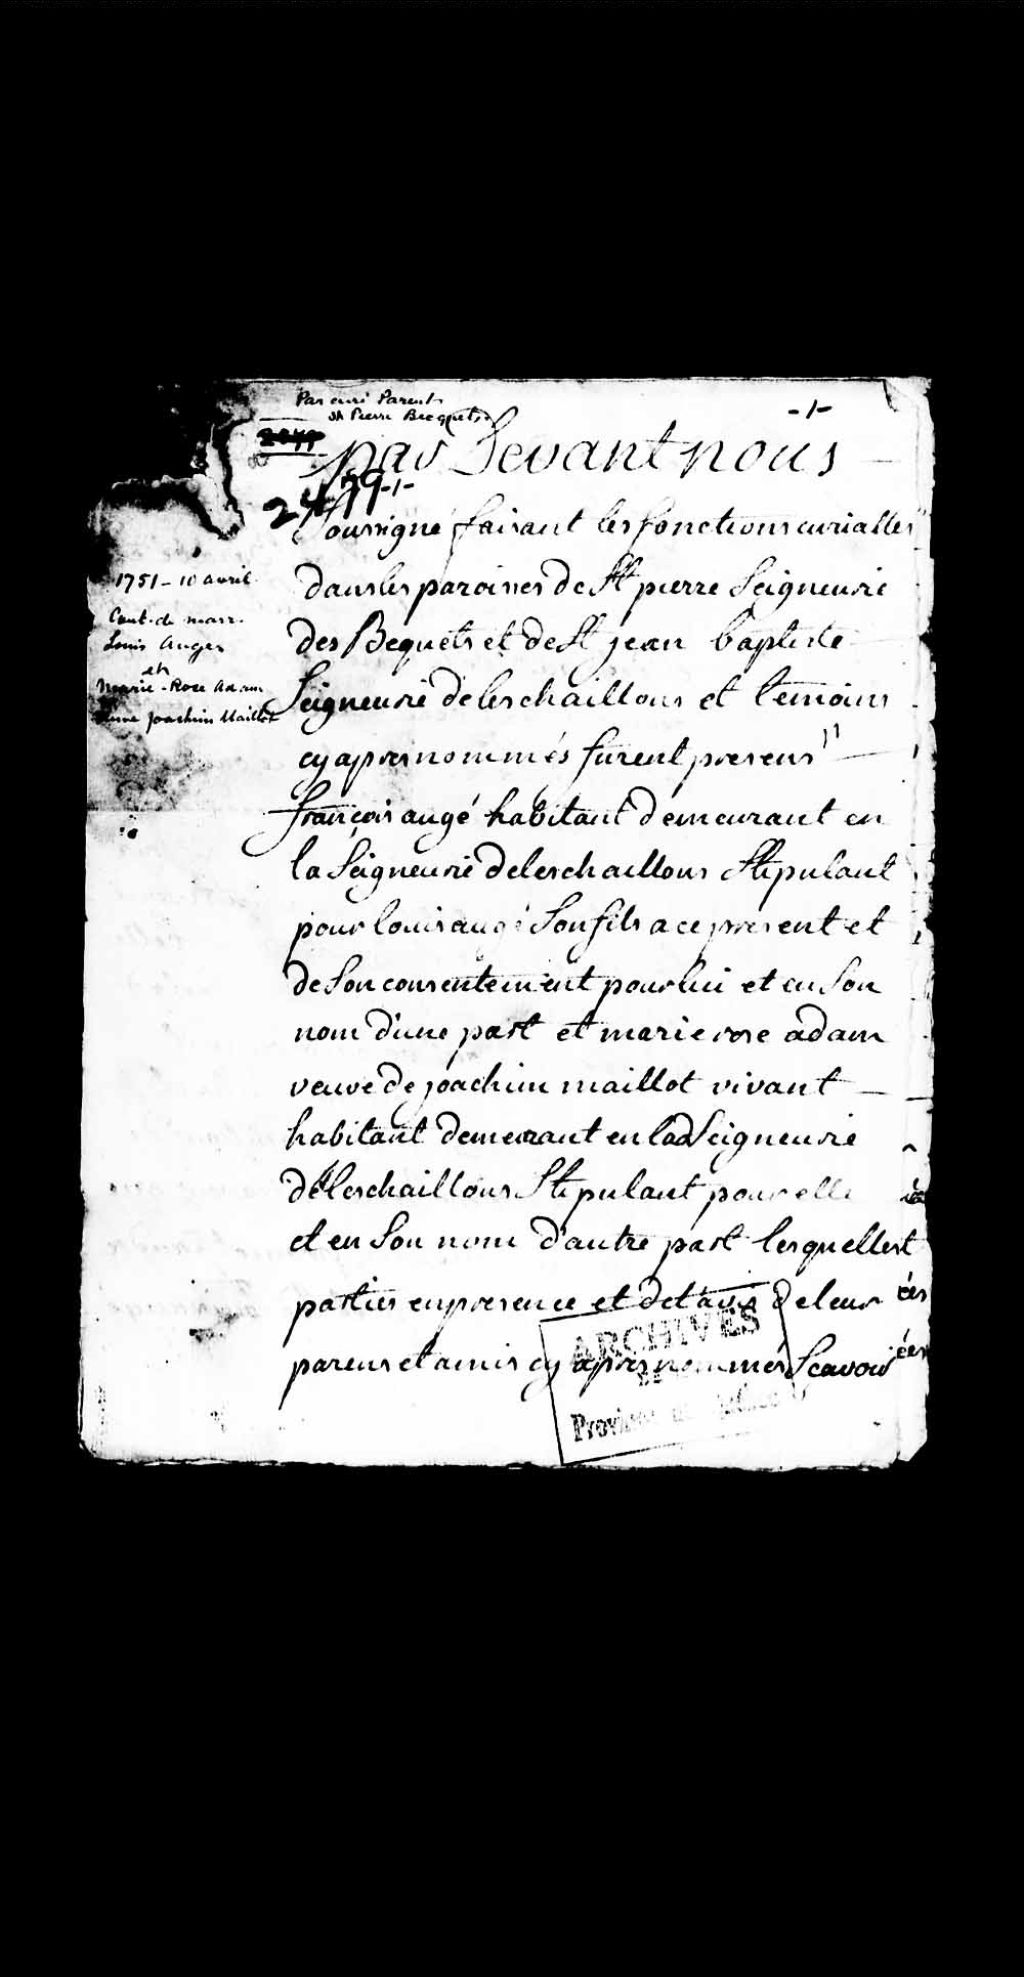 Par curé Parent
St Pierre Becquets
-1-
par Devant nous
2479-1-
Soussigné faisant les fonctions curialles
dans les paroisses de St pierre Seigneurie
des Bequets et de St jean baptiste
Seigneurie de leschaillons et temoins
cy apres nommés furent presens
françois augé habitant demeurant en
la Seigneurie de leschaillons Stipulant
pour louis augé Son fils a ce present et
de Son consentement pour lui et en Son
nom d'une part et marie rose adam
veuve de joachim maillot vivant
habitant demeurant en lad Seigneurie
de leschaillons Stipulant pour elle
et en Son nom d'autre part lesquelles
parties en presence et de l'avis de leur
parens et amis cy apres nommés Scavoir
1751 - 10 avril
Cont. de marr.
Louis Auger
et
Marie-Rose Adam
Joachim Maillot
ARCHIVES
DE
Province